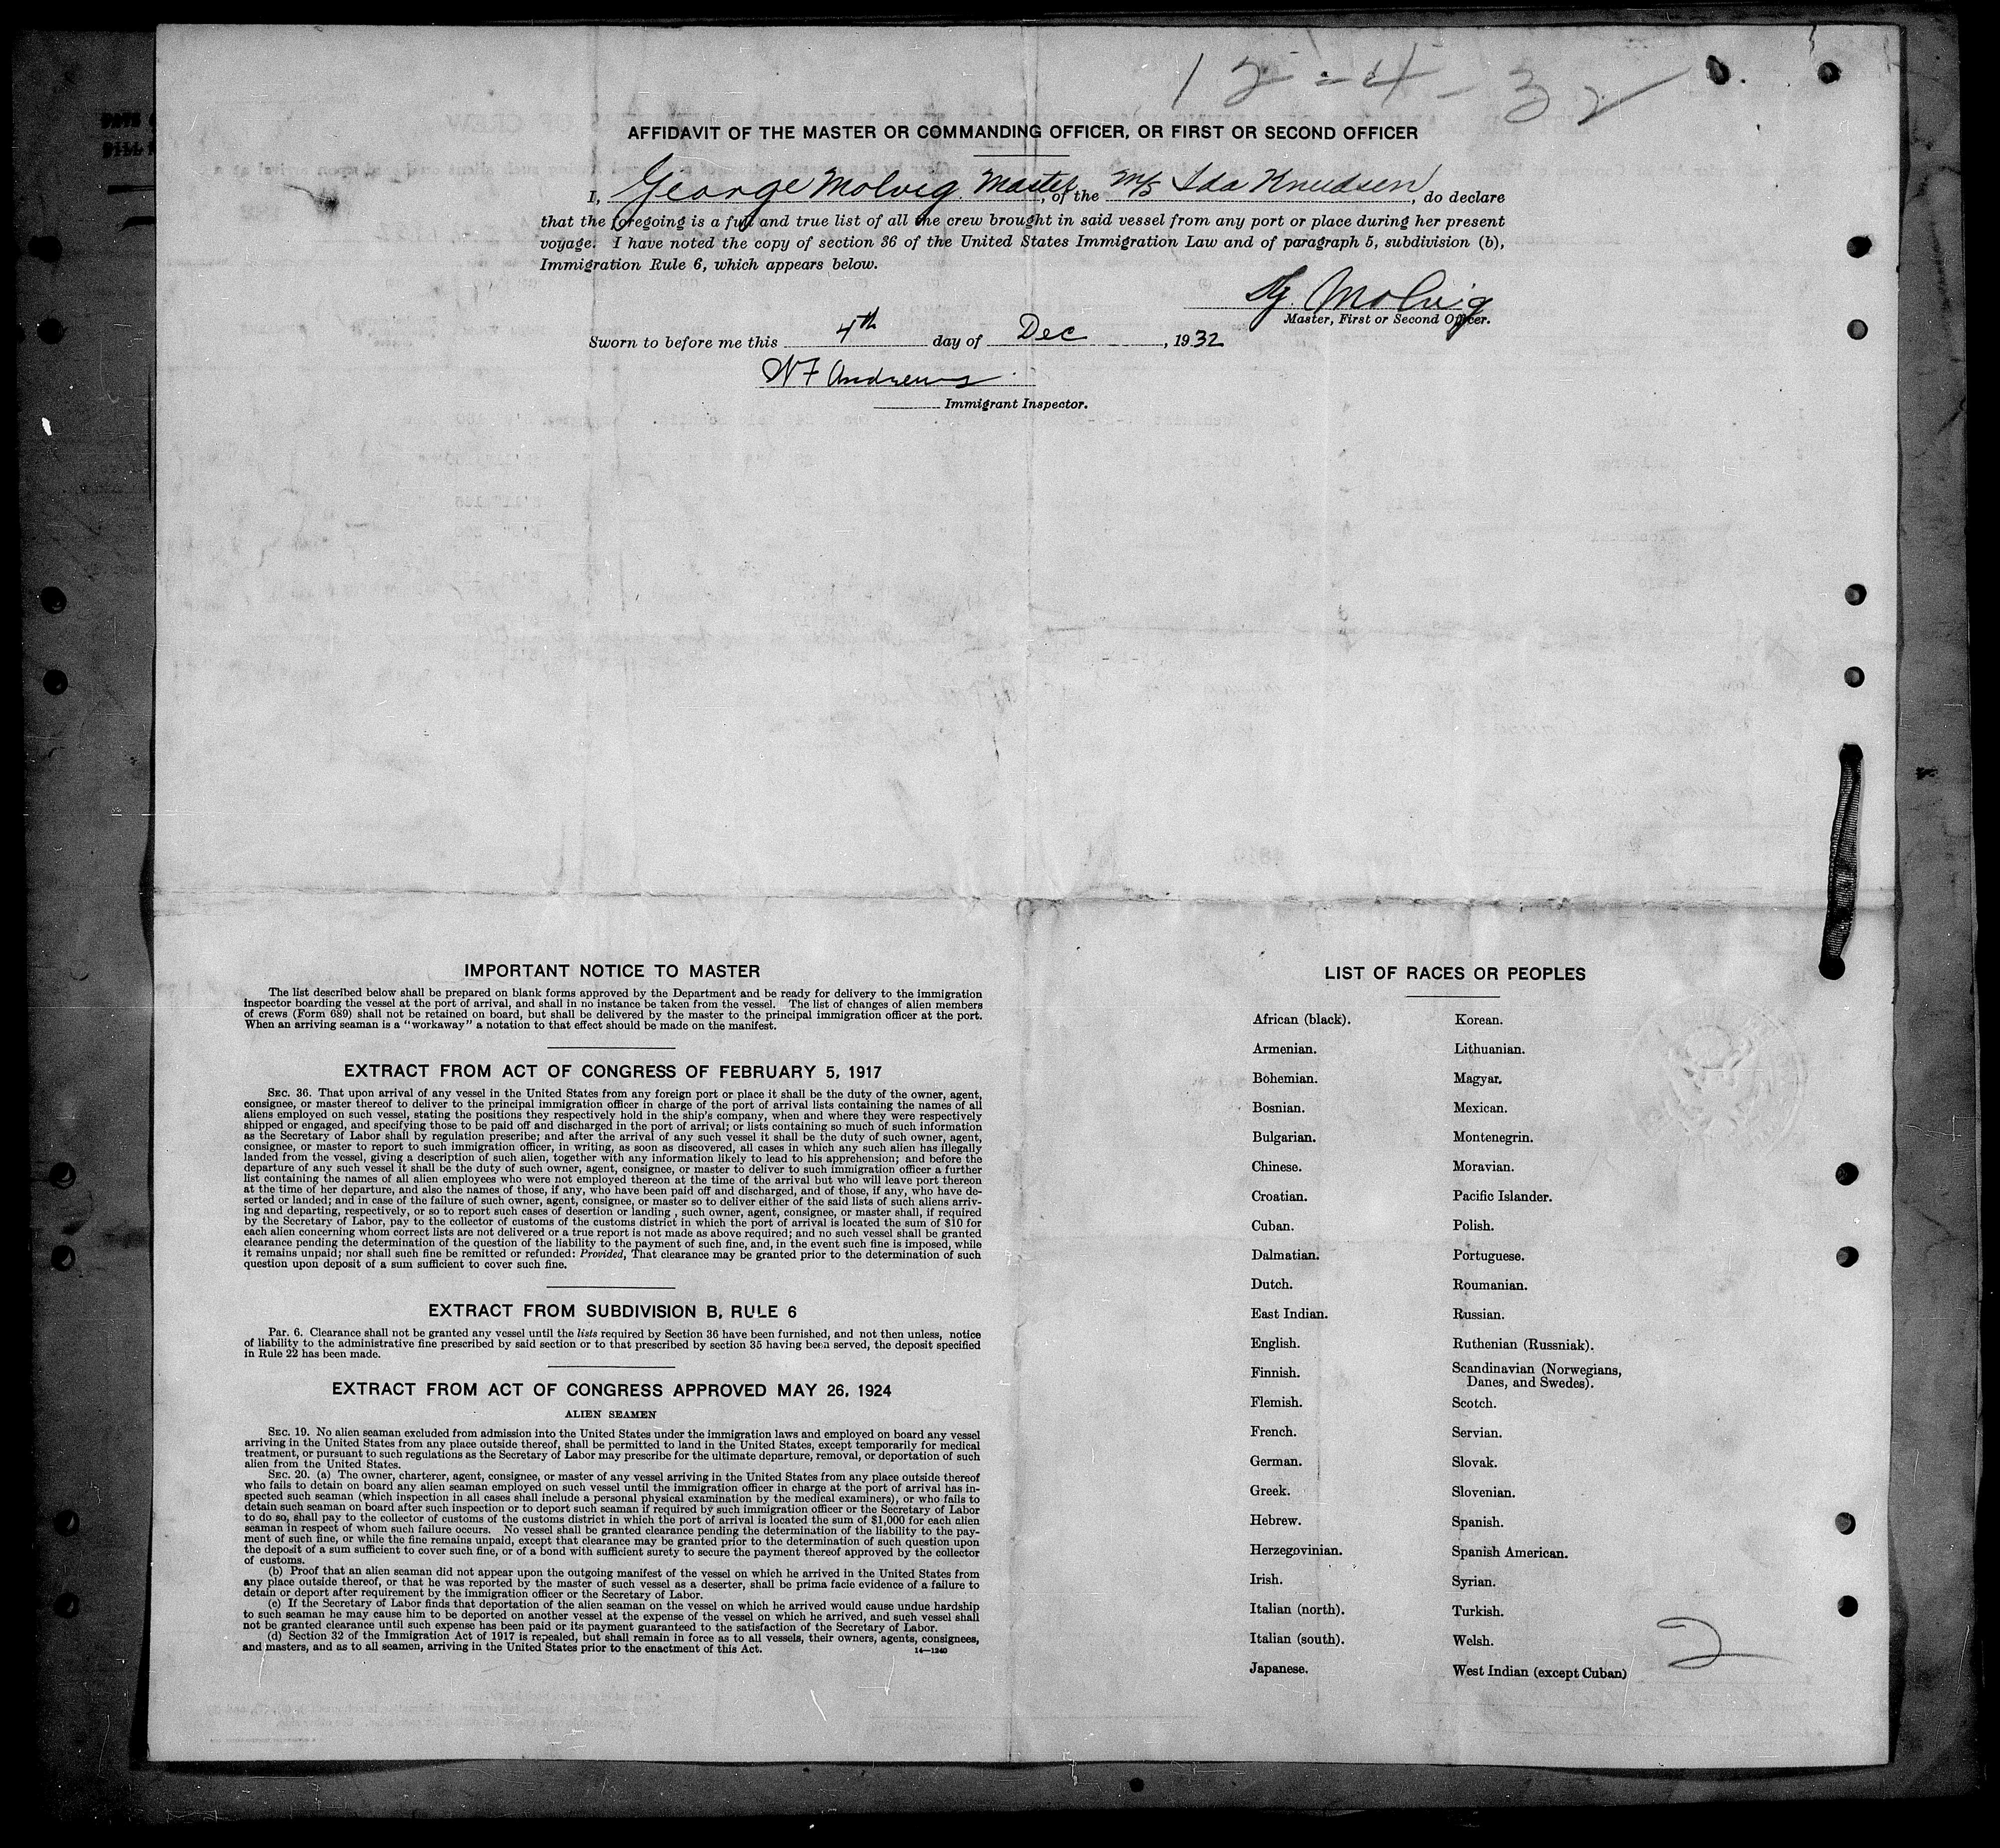 12-4-32
AFFIDAVIT OF THE MASTER OR COMMANDING OFFICER, OR FIRST OR SECOND OFFICER
I, George Molvig. Master, of the M/S Ida Knudsen, do declare
that the foregoing is a full and true list of all the crew brought in said vessel from any port or place during her present
voyage. I have noted the copy of section 36 of the United States Immigration Law and of paragraph 5, subdivision (b),
Immigration Rule 6, which appears below.
Molvig
Master, First or Second Officer.
Sworn to before me this 4th day of Dec, 1932
Andrews
Immigrant Inspector.
IMPORTANT NOTICE TO MASTER
The list described below shall be prepared on blank forms approved by the Department and be ready for delivery to the immigration
inspector boarding the vessel at the port of arrival, and shall in no instance be taken from the vessel. The list of changes of alien members
of crews (Form 689) shall not be retained on board, but shall be delivered by the master to the principal immigration officer at the port.
When an arriving seaman is a "workaway" a notation to that effect should be made on the manifest.
EXTRACT FROM ACT OF CONGRESS OF FEBRUARY 5, 1917
SEC. 36. That upon arrival of any vessel in the United States from any foreign port or place it shall be the duty of the owner, agent,
consignee, or master thereof to deliver to the principal immigration officer in charge of the port of arrival lists containing the names of all
aliens employed on such vessel, stating the positions they respectively hold in the ship's company, when and where they were respectively
shipped or engaged, and specifying those to be paid off and discharged in the port of arrival; or lists containing so much of such information
as the Secretary of Labor shall by regulation prescribe; and after the arrival of any such vessel it shall be the duty of such owner, agent,
consignee, or master to report to such immigration officer, in writing, as soon as discovered, all cases in which any such alien has illegally
landed from the vessel, giving a description of such alien, together with any information likely to lead to his apprehension; and before the
departure of any such vessel it shall be the duty of such owner, agent, consignee, or master to deliver to such immigration officer a further
list containing the names of all alien employees who were not employed thereon at the time of the arrival but who will leave port thereon
at the time of her departure, and also the names of those, if any, who have been paid off and discharged, and of those, if any, who have de-
serted or landed; and in case of the failure of such owner, agent, consignee, or master so to deliver either of the said lists of such aliens arriv-
ing and departing, respectively, or so to report such cases of desertion or landing , such owner, agent, consignee, or master shall, if required
by the Secretary of Labor, pay to the collector of customs of the customs district in which the port of arrival is located the sum of $10 for
each alien concerning whom correct lists are not delivered or a true report is not made as above required; and no such vessel shall be granted
clearance pending the determination of the question of the liability to the payment of such fine, and, in the event such fine is imposed, while
it remains unpaid; nor shall such fine be remitted or refunded: Provided, That clearance may be granted prior to the determination of such
question upon deposit of a sum sufficient to cover such fine.
EXTRACT FROM SUBDIVISION B, RULE 6
Par. 6. Clearance shall not be granted any vessel until the lists required by Section 36 have been furnished, and not then unless, notice
of liability to the administrative fine prescribed by said section or to that prescribed by section 35 having been served, the deposit specified
in Rule 22 has been made.
EXTRACT FROM ACT OF CONGRESS APPROVED MAY 26, 1924
ALIEN SEAMEN
SEC. 19. No alien seaman excluded from admission into the United States under the immigration laws and employed on board any vessel
arriving in the United States from any place outside thereof, shall be permitted to land in the United States, except temporarily for medical
treatment, or pursuant to such regulations as the Secretary of Labor may prescribe for the ultimate departure, removal, or deportation of such
alien from the United States.
SEC. 20. (a) The owner, charterer, agent, consignee, or master of any vessel arriving in the United States from any place outside thereof
who fails to detain on board any alien seaman employed on such vessel until the immigration officer in charge at the port of arrival has in-
spected such seaman (which inspection in all cases shall include a personal physical examination by the medical examiners), or who fails to
detain such seaman on board after such inspection or to deport such seaman if required by such immigration officer or the Secretary of Labor
to do so, shall pay to the collector of customs of the customs district in which the port of arrival is located the sum of $1,000 for each alien
seaman in respect of whom such failure occurs. No vessel shall be granted clearance pending the determination of the liability to the pay-
ment of such fine, or while the fine remains unpaid, except that clearance may be granted prior to the determination of such question upon
the deposit of a sum sufficient to cover such fine, or of a bond with sufficient surety to secure the payment thereof approved by the collector
of customs.
(b) Proof that an alien seaman did not appear upon the outgoing manifest of the vessel on which he arrived in the United States from
any place outside thereof, or that he was reported by the master of such vessel as a deserter, shall be prima facie evidence of a failure to
detain or deport after requirement by the immigration officer or the Secretary of Labor.
(c) If the Secretary of Labor finds that deportation of the alien seaman on the vessel on which he arrived would cause undue hardship
to such seaman he may cause him to be deported on another vessel at the expense of the vessel on which he arrived, and such vessel shall
not be granted clearance until such expense has been paid or its payment guaranteed to the satisfaction of the Secretary of Labor.
(d) Section 32 of the Immigration Act of 1917 is repealed, but shall remain in force as to all vessels, their owners, agents, consignees,
and masters, and as to all seamen, arriving in the United States prior to the enactment of this Act.
14—1240
LIST OF RACES OR PEOPLES
African (black).
Armenian.
Bohemian.
Bosnian.
Bulgarian.
Chinese.
Croatian.
Cuban.
Dalmatian.
Dutch.
East Indian.
English.
Finnish.
Flemish.
French.
German.
Greek.
Hebrew.
Herzegovinian.
Irish.
Italian (north).
Italian (south).
Japanese.
Korean.
Lithuanian.
Magyar.
Mexican.
Montenegrin.
Moravian.
Pacific Islander.
Polish.
Portuguese.
Roumanian.
Russian.
Ruthenian (Russniak).
Scandinavian (Norwegians,
Danes, and Swedes).
Scotch.
Servian.
Slovak.
Slovenian.
Spanish.
Spanish American.
Syrian.
Turkish.
Welsh.
West Indian (except Cuban)
2